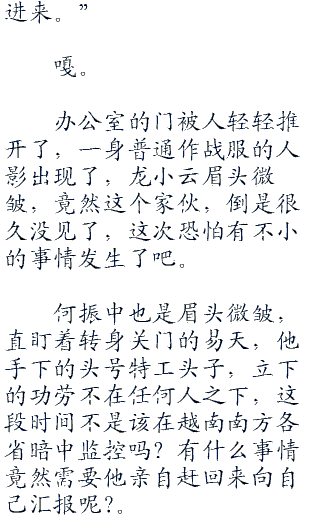 进来。”
嘎。
办公室的门被人轻轻推
开了，一身普通作战服的人
影出现了，龙小云眉头微
皱，竟然这个家伙，倒是很
久没见了，这次恐怕有不小
的事情发生了吧。
何振中也是眉头微皱，
直盯着转身关门的易天，他
手下的头号特工头子，立下
的功劳不在任何人之下，这
段时间不是该在越南南方各
省暗中监控吗？有什么事情
竟然需要他亲自赶回来向自
己汇报呢?。